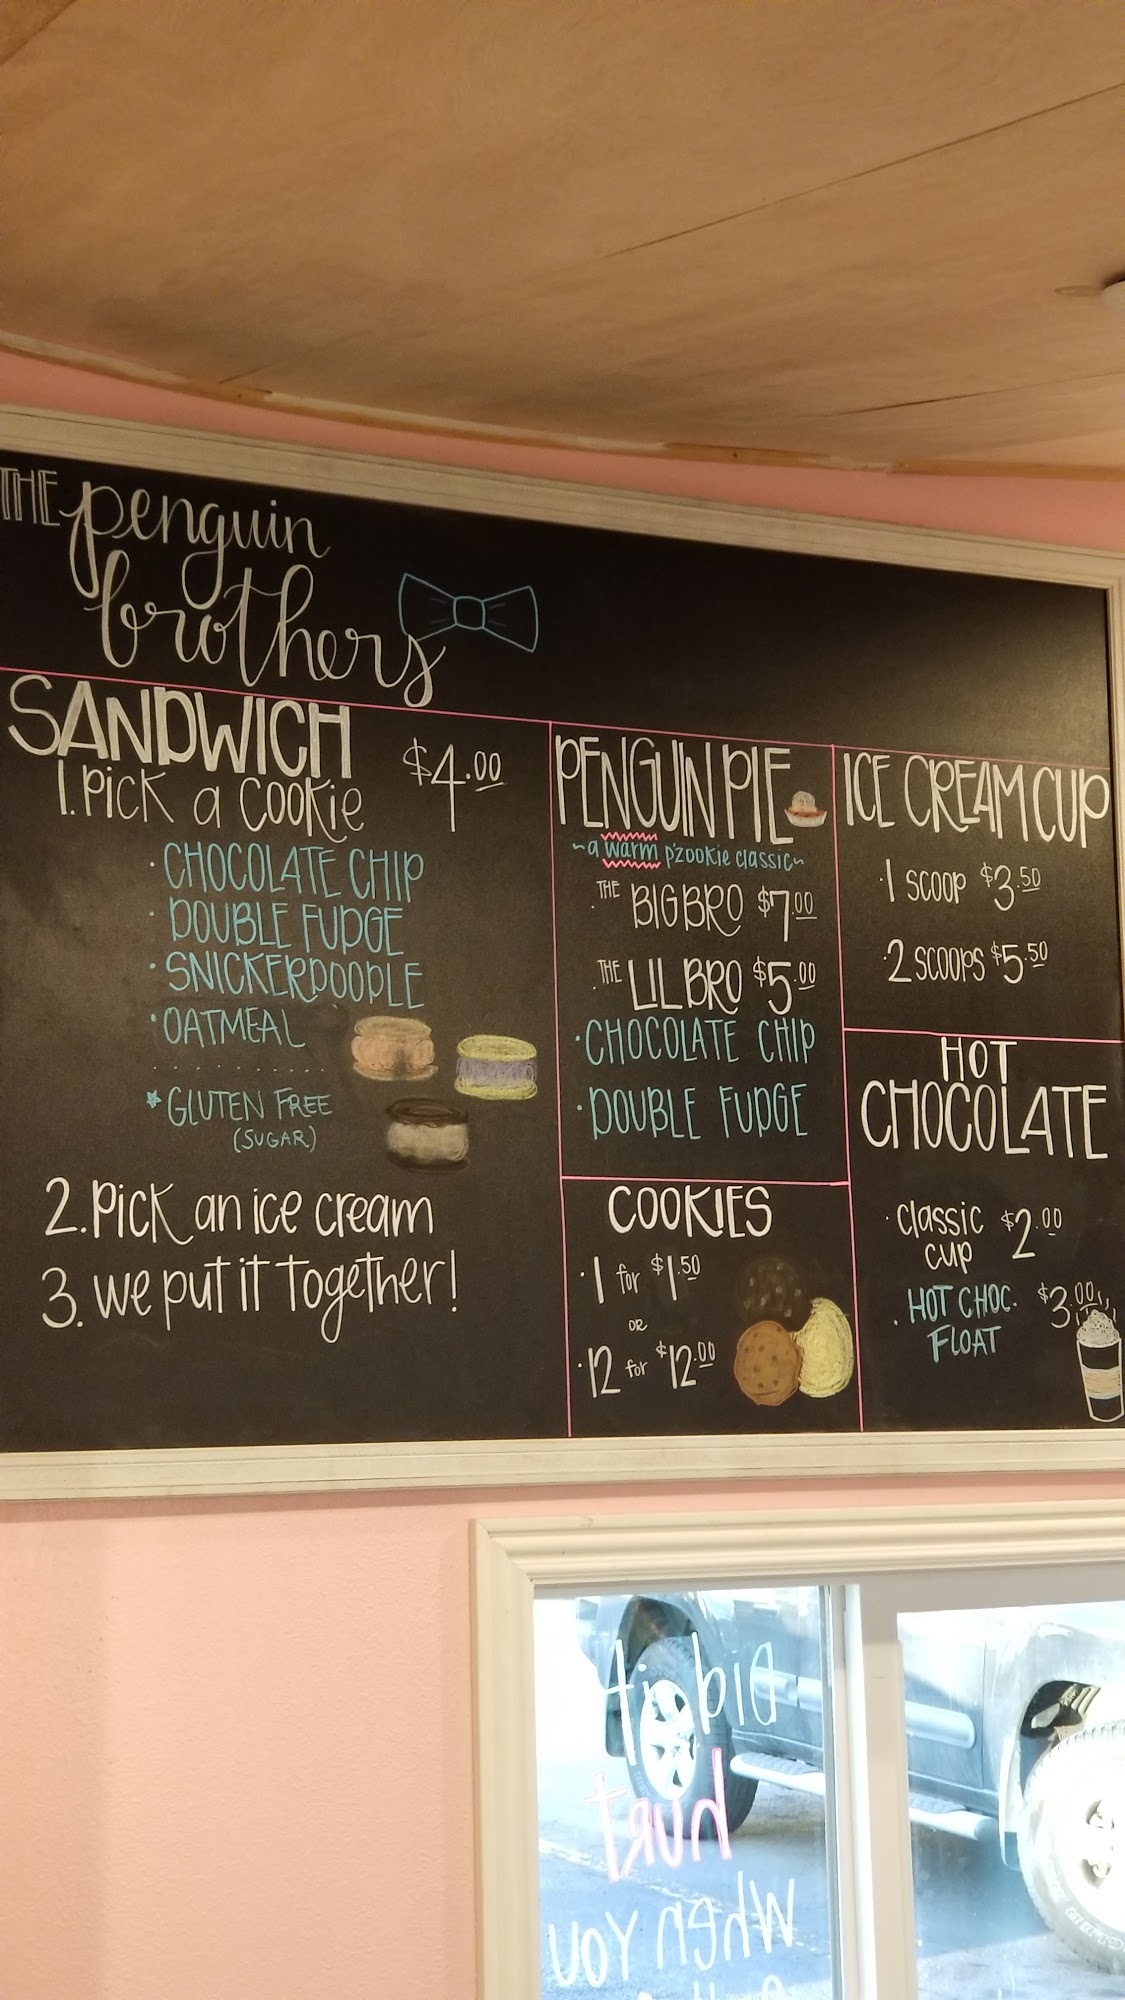 THE penguin
brothers
SANDWICH $4.00
1. Pick a cookie
• CHOCOLATE CHIP
• DOUBLE FUDGE
• SNICKERDOODLE
• OATMEAL
* GLUTEN FREE
(SUGAR)
2. Pick an ice cream
3. We put it together!
PENGUIN PIE
~a warm p'zookie classic~
• THE BIG BRO $7.00
• THE LIL BRO $5.00
• CHOCOLATE CHIP
• DOUBLE FUDGE
COOKIES
• 1 for $1.50
OR
• 12 for $12.00
ICE CREAM CUP
• 1 SCOOP $3.50
• 2 SCOOPS $5.50
HOT
CHOCOLATE
• classic $2.00
cup
• HOT CHOC. $3.00
FLOAT
Did it
hurt
When you